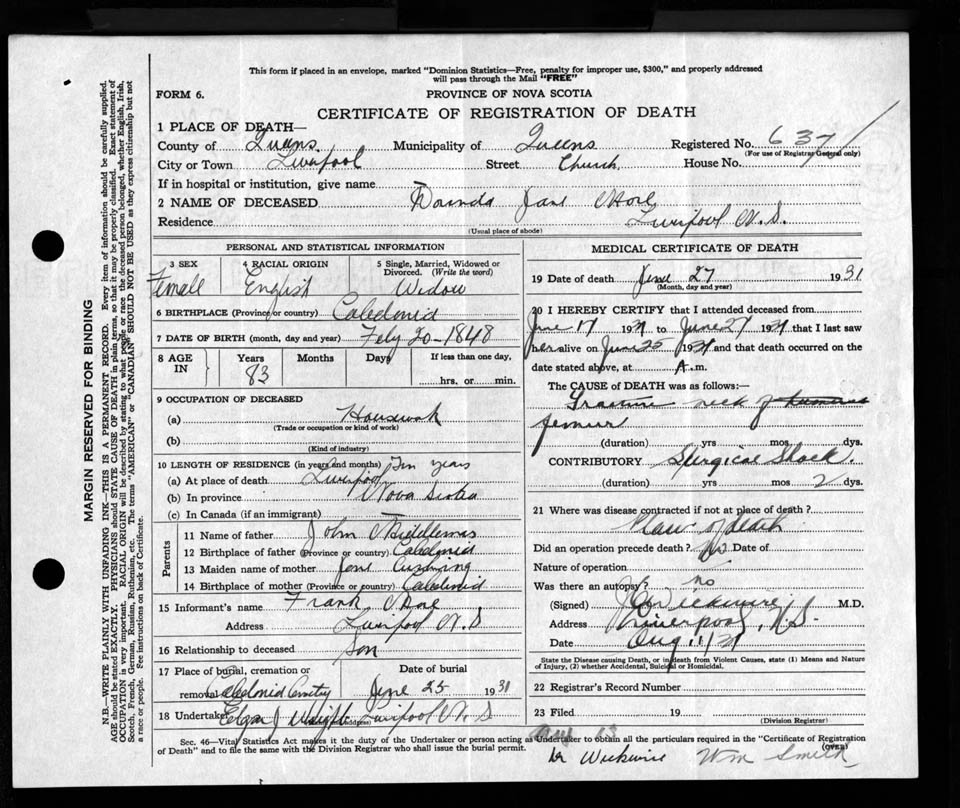 This form if placed in an envelope, marked "Dominion Statistics—Free, penalty for improper use, $300," and properly addressed
will pass through the Mail "FREE"
FORM 6.
PROVINCE OF NOVA SCOTIA
CERTIFICATE OF REGISTRATION OF DEATH
1 PLACE OF DEATH—
County of Queens Municipality of Queens Registered No. 637
(For use of Registrar General only)
City or Town Liverpool Street Church House No.
If in hospital or institution, give name
2 NAME OF DECEASED Jane
Residence Liverpool N.S.
(Usual place of abode)
PERSONAL AND STATISTICAL INFORMATION
3 SEX 4 RACIAL ORIGIN 5 Single, Married, Widowed or Divorced. (Write the word)
Female English Widow
6 BIRTHPLACE (Province or country) Caledonia
7 DATE OF BIRTH (month, day and year) Feby 20-1848
8 AGE IN Years Months Days If less than one day,
83
hrs. or min.
9 OCCUPATION OF DECEASED
(a) Housework
(Trade or occupation or kind of work)
(b)
(Kind of industry)
10 LENGTH OF RESIDENCE (in years and months) Ten years
(a) At place of death Liverpool
(b) In province Nova Scotia
(c) In Canada (if an immigrant)
Parents
11 Name of father John Middlemas
12 Birthplace of father (Province or country) Caledonia
13 Maiden name of mother Jane Cushing
14 Birthplace of mother (Province or country) Caledonia
15 Informant's name Frank
Address Liverpool N.S
16 Relationship to deceased Son
17 Place of burial, cremation or removal Caledonia Cemetry Date of burial June 25 1931
18 Undertaker Liverpool N S
(Address)
MEDICAL CERTIFICATE OF DEATH
19 Date of death June 27 1931
(Month, day and year)
20 I HEREBY CERTIFY that I attended deceased from
June 17 1931 to June 27 1931 that I last saw
her alive on June 25 1931 and that death occurred on the
date stated above, at A. m.
The CAUSE of DEATH was as follows:—
Fracture neck of humerus
femur
(duration) yrs mos dys.
CONTRIBUTORY Surgical Shock.
(duration) yrs mos 2 dys.
21 Where was disease contracted if not at place of death?
Place of death
Did an operation precede death? No Date of
Nature of operation
Was there an autopsy? no
(Signed) Wickwire M.D.
Address Liverpool, N.S.
Date Aug 11/31
State the Disease causing Death, or in death from Violent Causes, state (1) Means and Nature
of Injury, (2) whether Accidental, Suicidal or Homicidal.
22 Registrar's Record Number
23 Filed 19
(Division Registrar)
Sec. 46—Vital Statistics Act makes it the duty of the Undertaker or person acting as Undertaker to obtain all the particulars required in the "Certificate of Registration
of Death" and to file the same with the Division Registrar who shall issue the burial permit.
(OVER)
Dr Wickwire Wm Smith
MARGIN RESERVED FOR BINDING
N.B.—WRITE PLAINLY WITH UNFADING INK—THIS IS A PERMANENT RECORD. Every item of information should be carefully supplied.
AGE should be stated EXACTLY. PHYSICIANS should STATE CAUSE OF DEATH in plain terms, so that it may be properly classified. Exact statement of
OCCUPATION is very important. RACIAL ORIGIN will be described by stating to what people or race the deceased person belonged, whether English, Irish,
Scotch, French, German, Russian, Ruthenian, etc. The terms "AMERICAN" or "CANADIAN" SHOULD NOT BE USED as they express citizenship but not
a race or people. See instructions on back of Certificate.